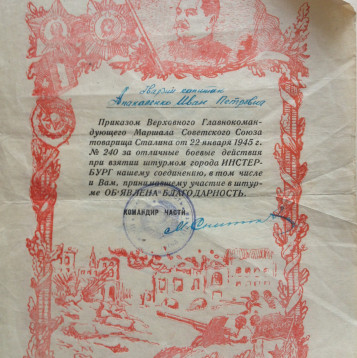 Гвардии
Иван Петрович
Приказом Верховного Главнокоман-
дующего Маршала Советского Союза
товарища Сталина от 22 января 1945 г.
№ 240 за отличные боевые действия
при взятии штурмом города ИНСТЕР-
БУРГ нашему соединению, в том числе
и Вам, принимавшему участие в штур-
ме ОБ'ЯВЛЕНА БЛАГОДАРНОСТЬ.
КОМАНДИР ЧАСТИ